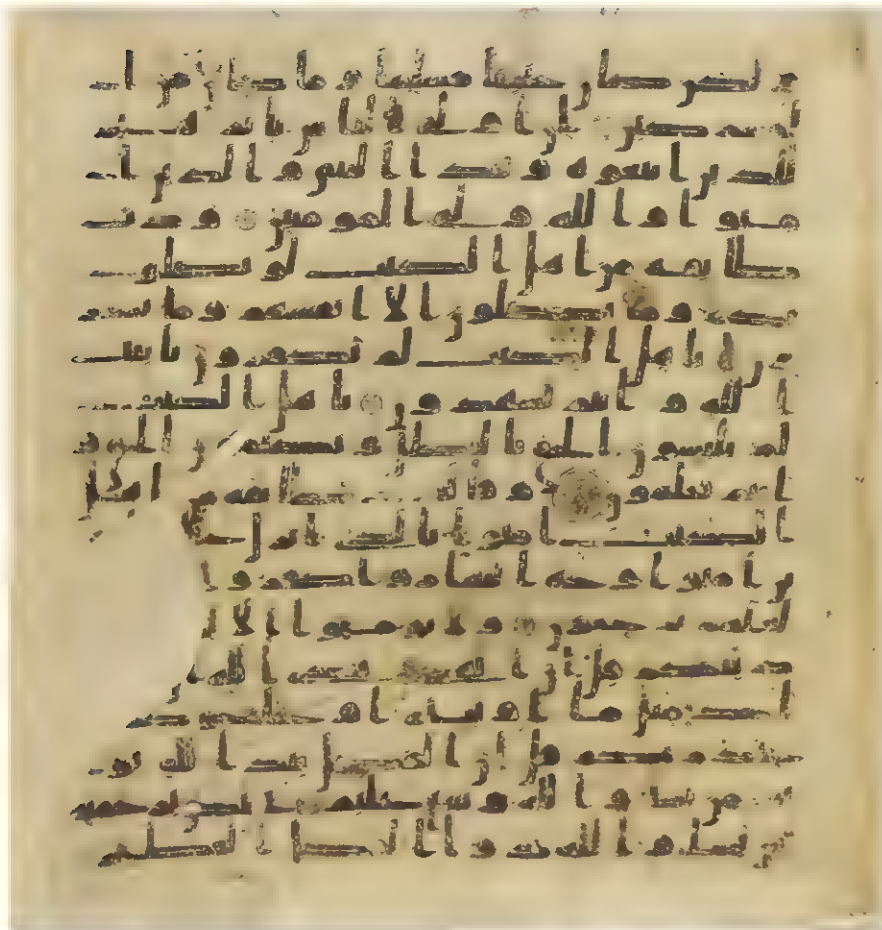 و لكن كان حنيفا مسلما و ما كان من ا
لمشركين ان اولى الناس بابرهيم
للذين اتبعوه و هذا النبي و الذين ا
منوا و الله ولي المومنين ودت
طائفه من اهل الكتب لو يضلو
نكم وما يضلون الا انفسهم و ما يشعر
ون ياهل الكتب لم تكفرون بايت
الله و انتم تشهدون ياهل الكتب
لم تلبسون الحق بالبطل و تكتمون الحق و
انتم تعلمون وقالت طائفه من اهل
الكتب امنوا بالذي انزل
ين امنوا وجه النهار و اكفروا ا
لعلهم يرجعون و لا تومنوا الا
دينكم قل ان الهدى هدى الله
احد مثل ما اوتيتم او يحاجوكم
عند ربكم قل ان الفضل بيد الله يو
تيه من يشا و الله وسع عليم يختص برحمته
من يشا و الله ذو الفضل العظيم